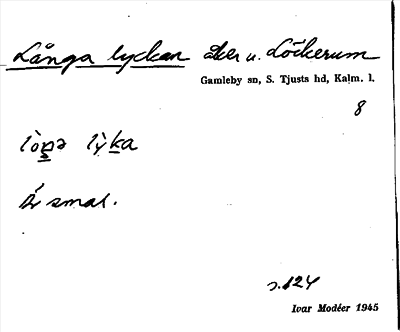 Långa lyckan åker u. Löckerum
Gamleby sn, S. Tjusts hd, Kalm. l.
8
Är smal.
s. 124
Ivar Modéer 1945